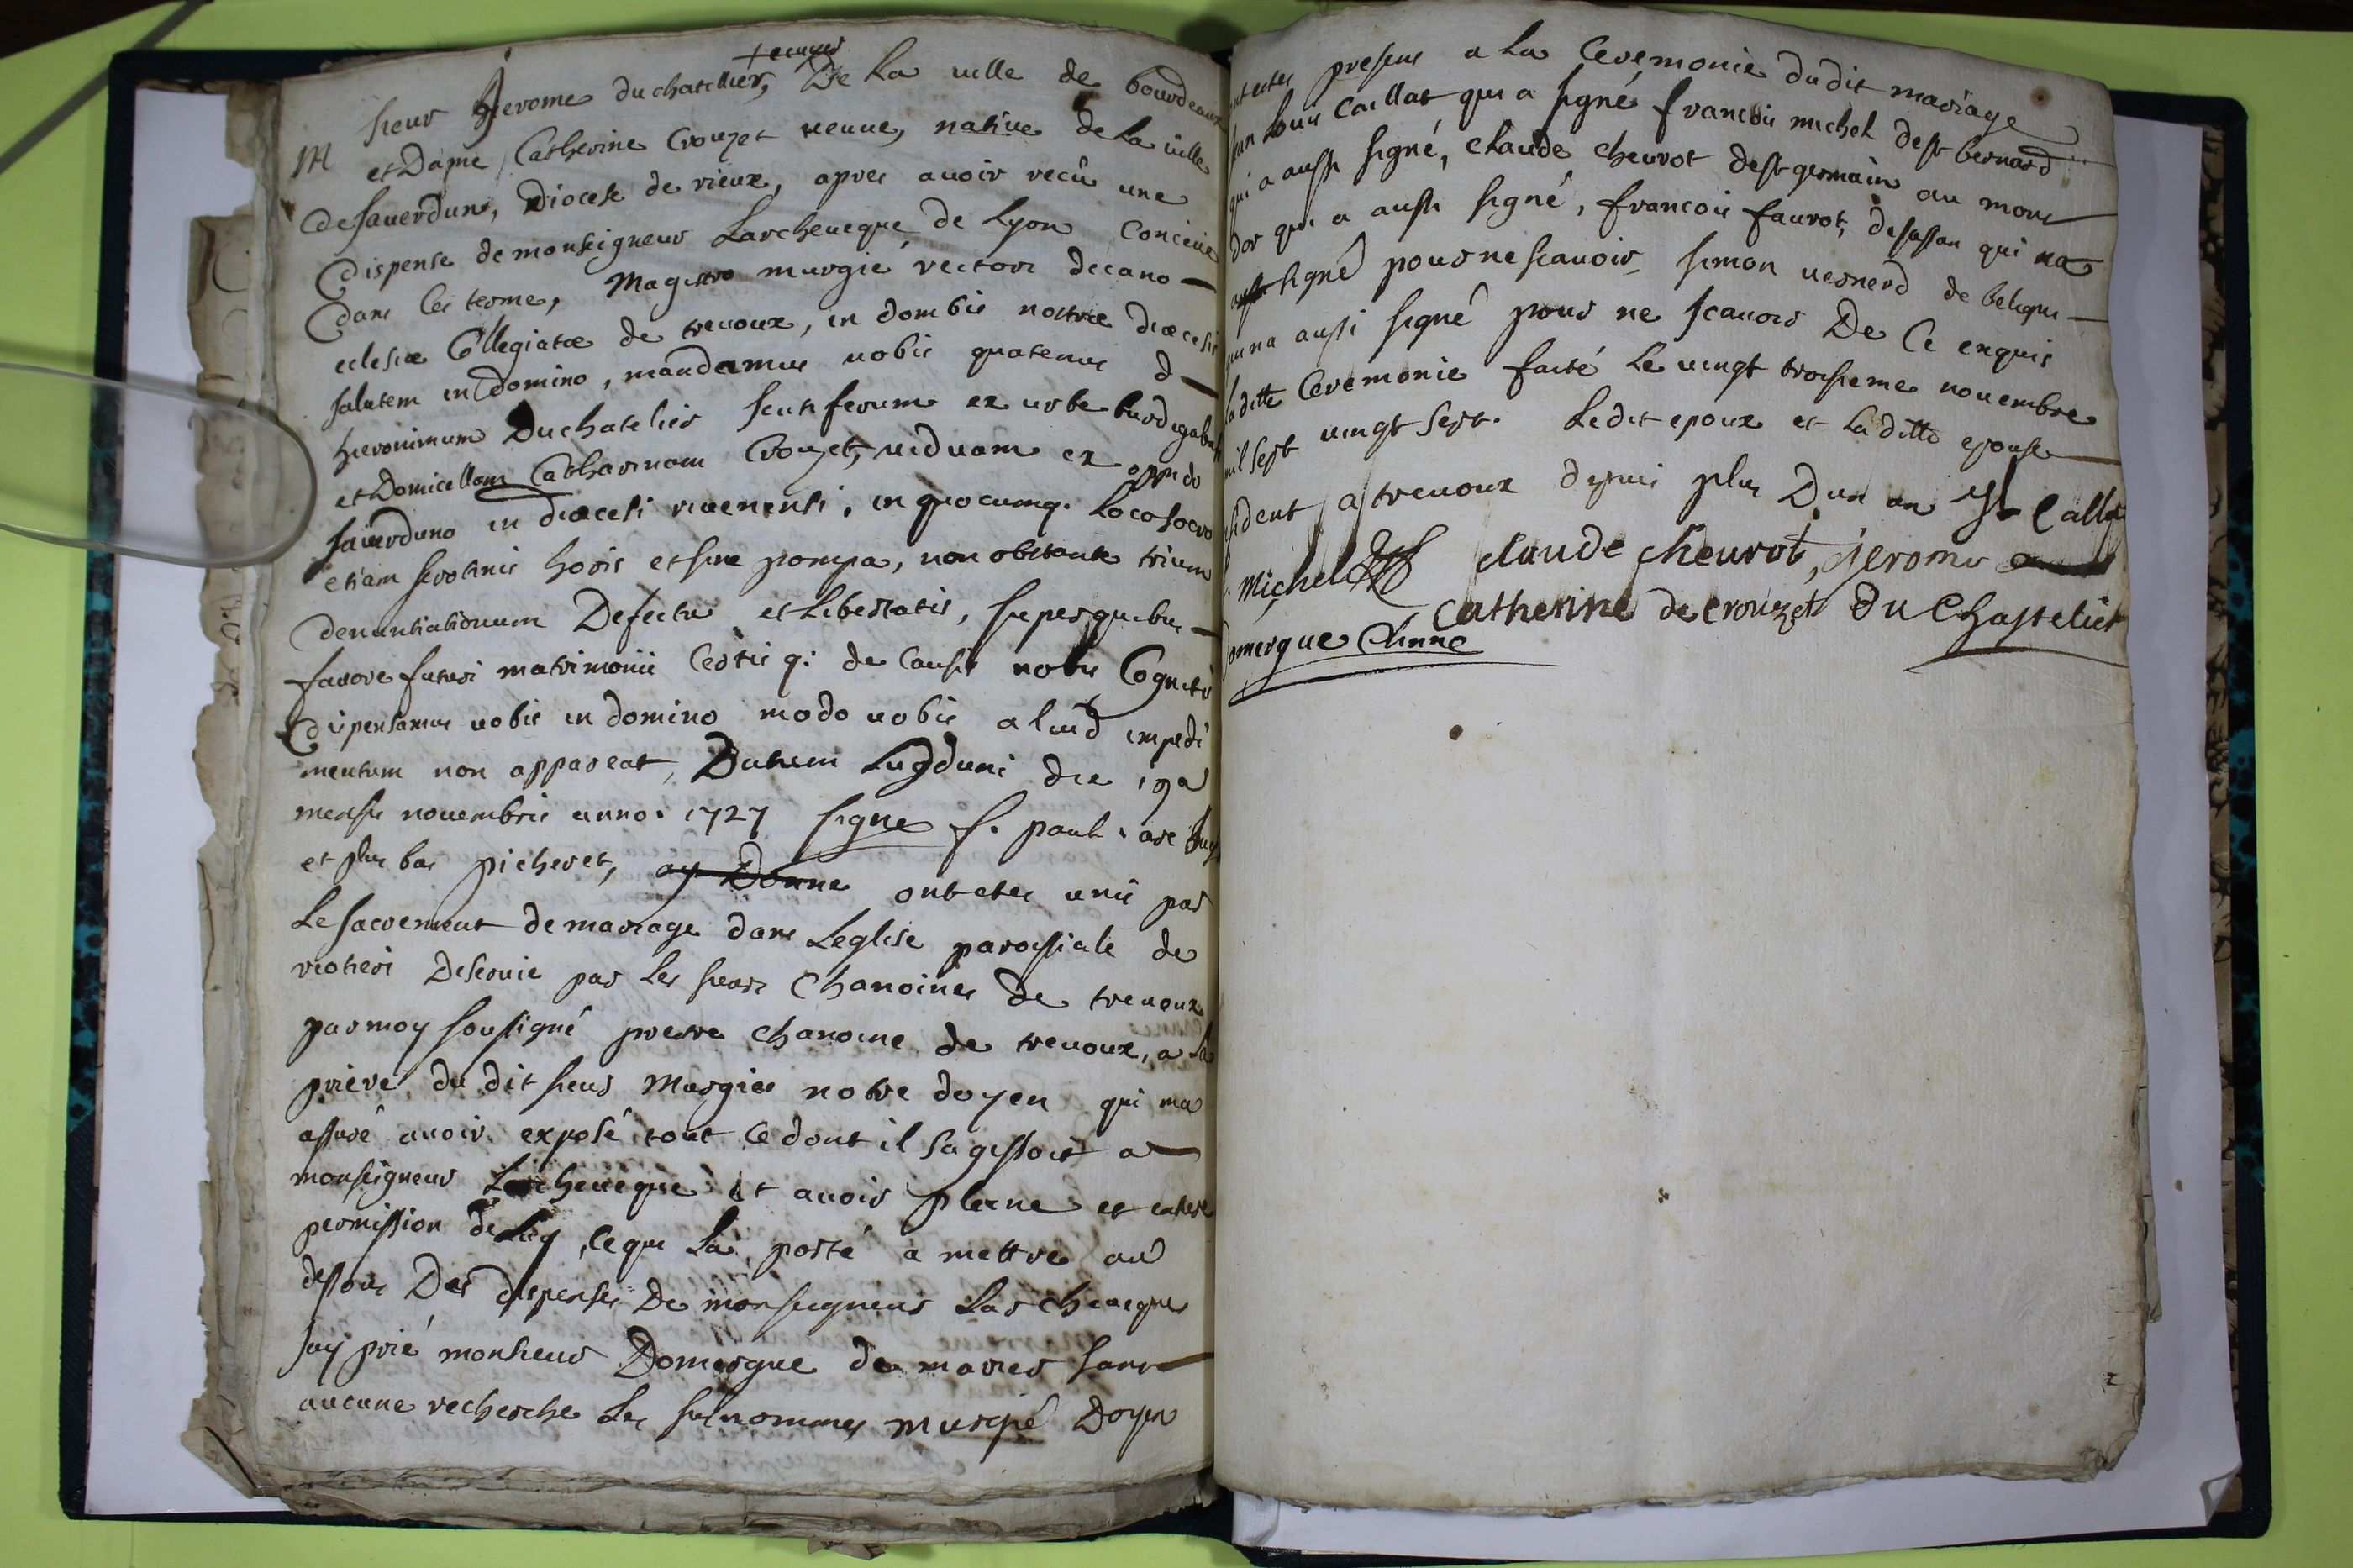 +ecuyer
sieur Jerome duchatellier, De La ville de bourdeaux
M et Dame Catherine Crouzet veuve, native de La ville
de saverdun, Diocese de rieux, apres avoir recû une
dispense de monseigneur Larcheveque de Lyon Conceüe
dans les terme, Magistro murgié rectori decano
eclesiæ Collegiatæ de trevoux, in dombis nostræ diœcesis
salutem in domino, mandamus vobis quatenus d
hieronimum Duchatelier scutiferum ex urbe burdigalensi
et Domicellam Catharinam Crouzet, viduam ex oppido
saverduno in diœcesi rivenensi, in quocumq. Loco sacro
etiam serotinis horis et sine pompa, non obstante trium
denuntiationum Defectu et Libertatis, super quibus
favore futuri matrimonii Certis q: de Causis nobis Cognitis
dispensamus vobis in domino modo vobis aliud impedi
mentum non appareat, Datum Lugduni die 19a
mensis novembris anno. 1727 signe f. paul. arc Lug
et plus bas picheret, ay Donne ont etes unis par
Le sacrement de mariage dans Leglise paroissiale de
riotiers Deservie par les sieurs Chanoines de trevoux
par moy soussigné prestre chanoine de trevoux, a La
priere du dit sieur Murgier notre doyen qui ma
assuré avoir exposé tout ce dont il sagissoit a
monseigneur Larcheveque et avoir pleine et entiere
permission de Luy, ce qui La porté a mettre au
dessous Des dispenses De monseigneur Larcheveque
Jay prié monsieur Domergue de marier sans
aucune recherche Les susnommes murgié Doyen
ont etes presens a La Ceremonie dudit mariage
Jean Louis Caillat qui a signé francois michel de st bernard
qui a aussi signé, claude chevrot de st germain au mont
dor qui a aussi signé, francois favrot, de sassan qui na
aussi signé pour ne scavoir, simon vernerd de beligni
qui na aussi signé pour ne scavoir De Ce enquis
la ditte Ceremonie faite Le vingt troisieme novembre
mil sept vingt sept. Ledit epoux et La ditte epouse
resident a trevoux depuis plus Dun an Callat
Michel claude cheurot, jerome
Catherine de crouzet du Chastelier
Domergue Chnne